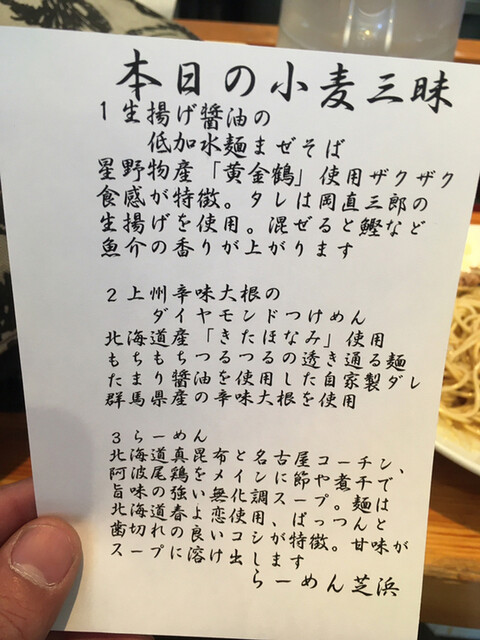 本日の小麦三昧
1 生揚げ醤油の
低加水麺まぜそば
星野物産「黄金鶴」使用ザクザク
食感が特徴。タレは岡直三郎の
生揚げを使用。混ぜると鰹など
魚介の香りが上がります
2 上州辛味大根の
ダイヤモンドつけめん
北海道産「きたほなみ」使用
もちもちつるつるの透き通る麺
たまり醤油を使用した自家製ダレ
群馬県産の辛味大根を使用
3 らーめん
北海道真昆布と名古屋コーチン、
阿波尾鶏をメインに節や煮干で
旨味の強い無化調スープ。麺は
北海道春よ恋使用、ばっつんと
歯切れの良いコシが特徴。甘味が
スープに溶け出します
らーめん芝浜